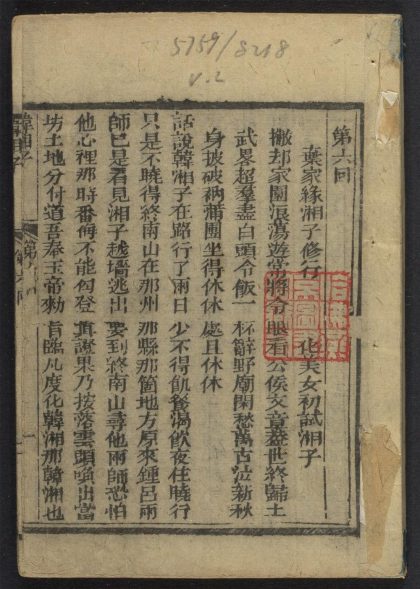 5759/8218
v.2
第六回
棄家緣湘子修行　化美女初試湘子
撇却家園浪蕩遊常將令眼看公侯文章蓋世終歸土
武畧超羣盡白頭令飯一杯辭野廟閑愁萬古泣新秋
身披破衲蒲團坐得休休處且休休
話說韓湘子在路行了兩日少不得飢餐渴飲夜住曉行
只是不曉得終南山在那州那縣那箇地方原來鍾呂兩
師已是看見湘子越墻逃出要到終南山尋他兩師恐怕
他心裡那時番悔不能勾登眞證果乃按落雲頭喚出當
坊土地分付道吾奉玉帝勅旨臨凡度化韓湘那韓湘也